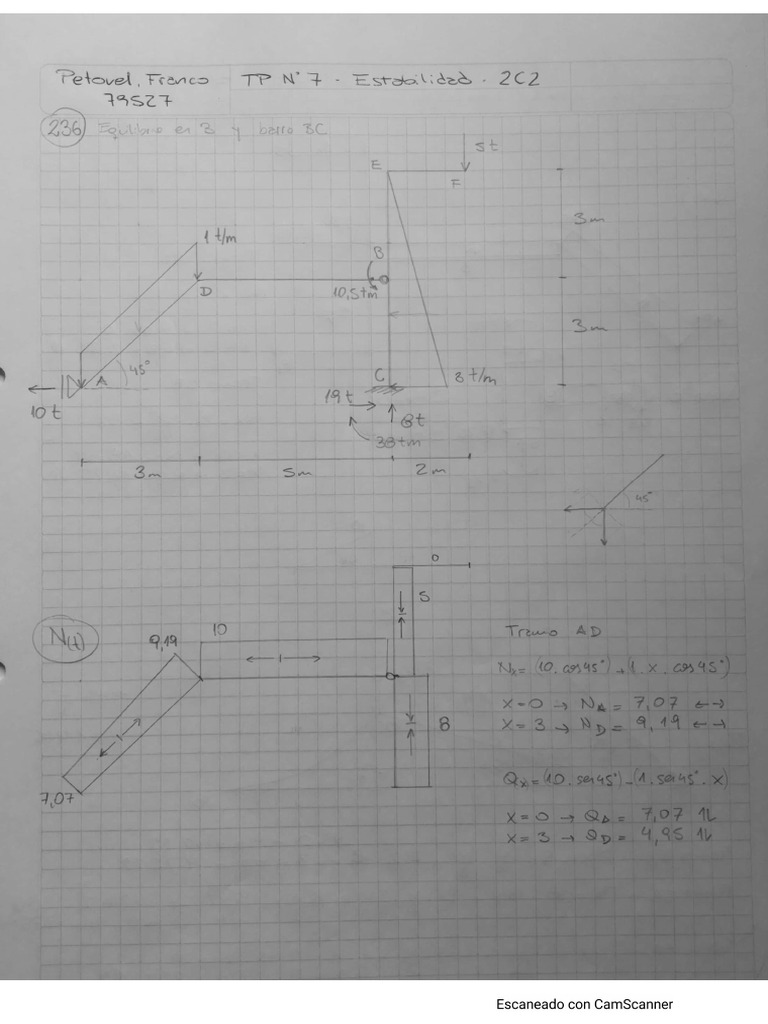 Petovel, Franco TP N°7 - Estabilidad - 2C2
79527
236 Equilibrio en B y barra BC
5t
E
F
3m
1 t/m
B
D
10,5tm
3m
45°
A
C
8 t/m
10 t
19t
8t
38tm
3m
5m
2m
45°
0
5
N(t)
9,19
10
Tramo AD
Nx = (10 . cos 45°) + (1 . x . cos 45°)
x=0 → NA = 7,07 ←→
x=3 → ND = 9,19 ←→
8
Qx = (10 . sen 45°) - (1 . sen 45° . x)
7,07
x=0 → QA = 7,07 1L
x=3 → QD = 4,95 1L
Escaneado con CamScanner